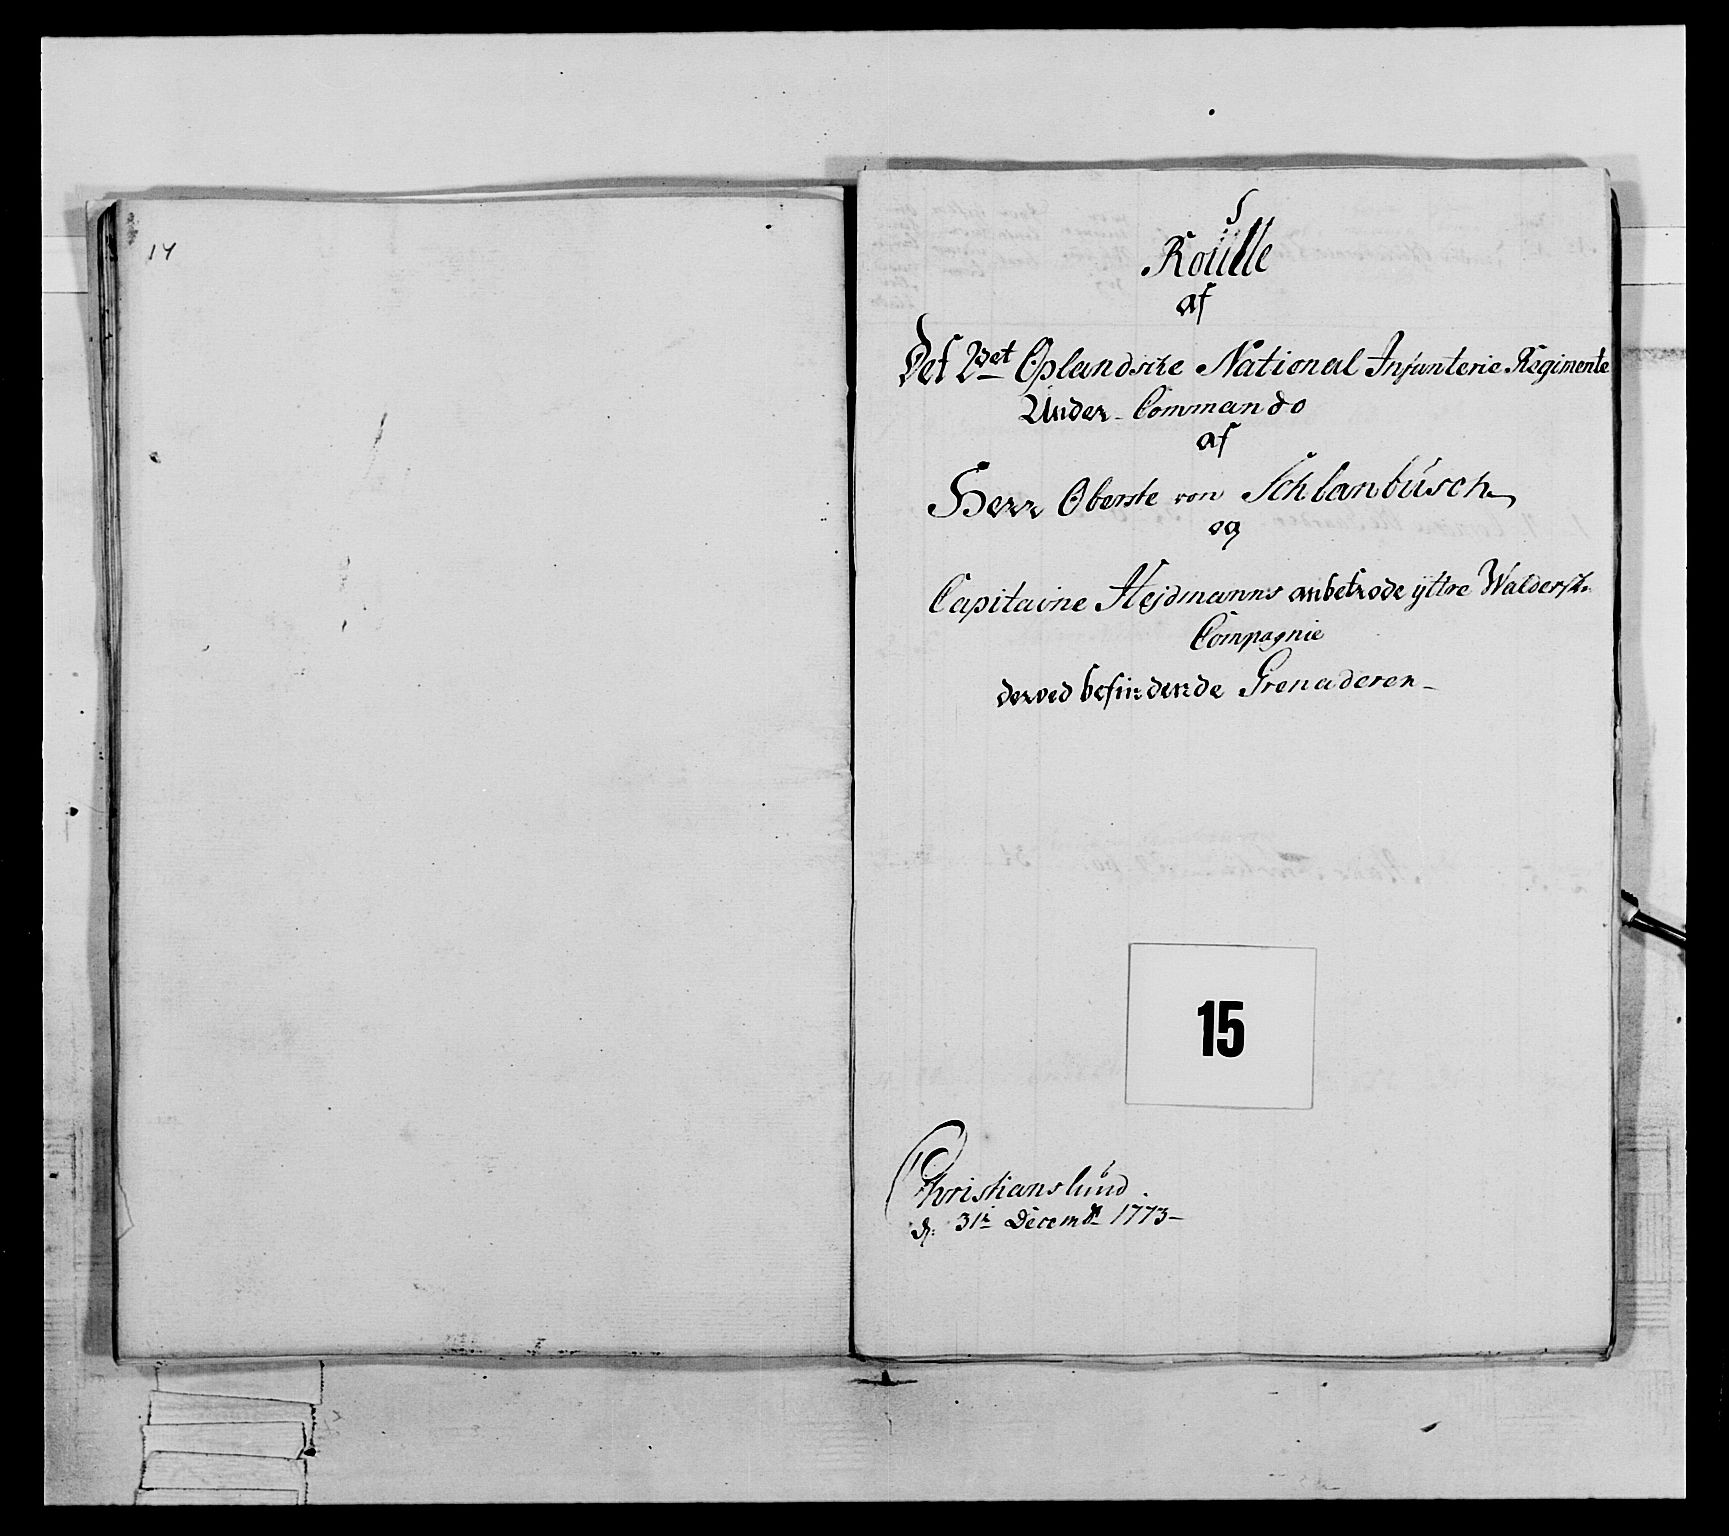 14
Roülle
af
Det 2det Oplandske National Infanterie Regimente
Under Commando
af
Herr Oberste von Schlanbusch
og
Capitaine Hejdmanns anbetrode yttre Waldersk.
Compagnie
derved befindende Grenaderer
15
Christianslund
d. 31te Decembr 1773